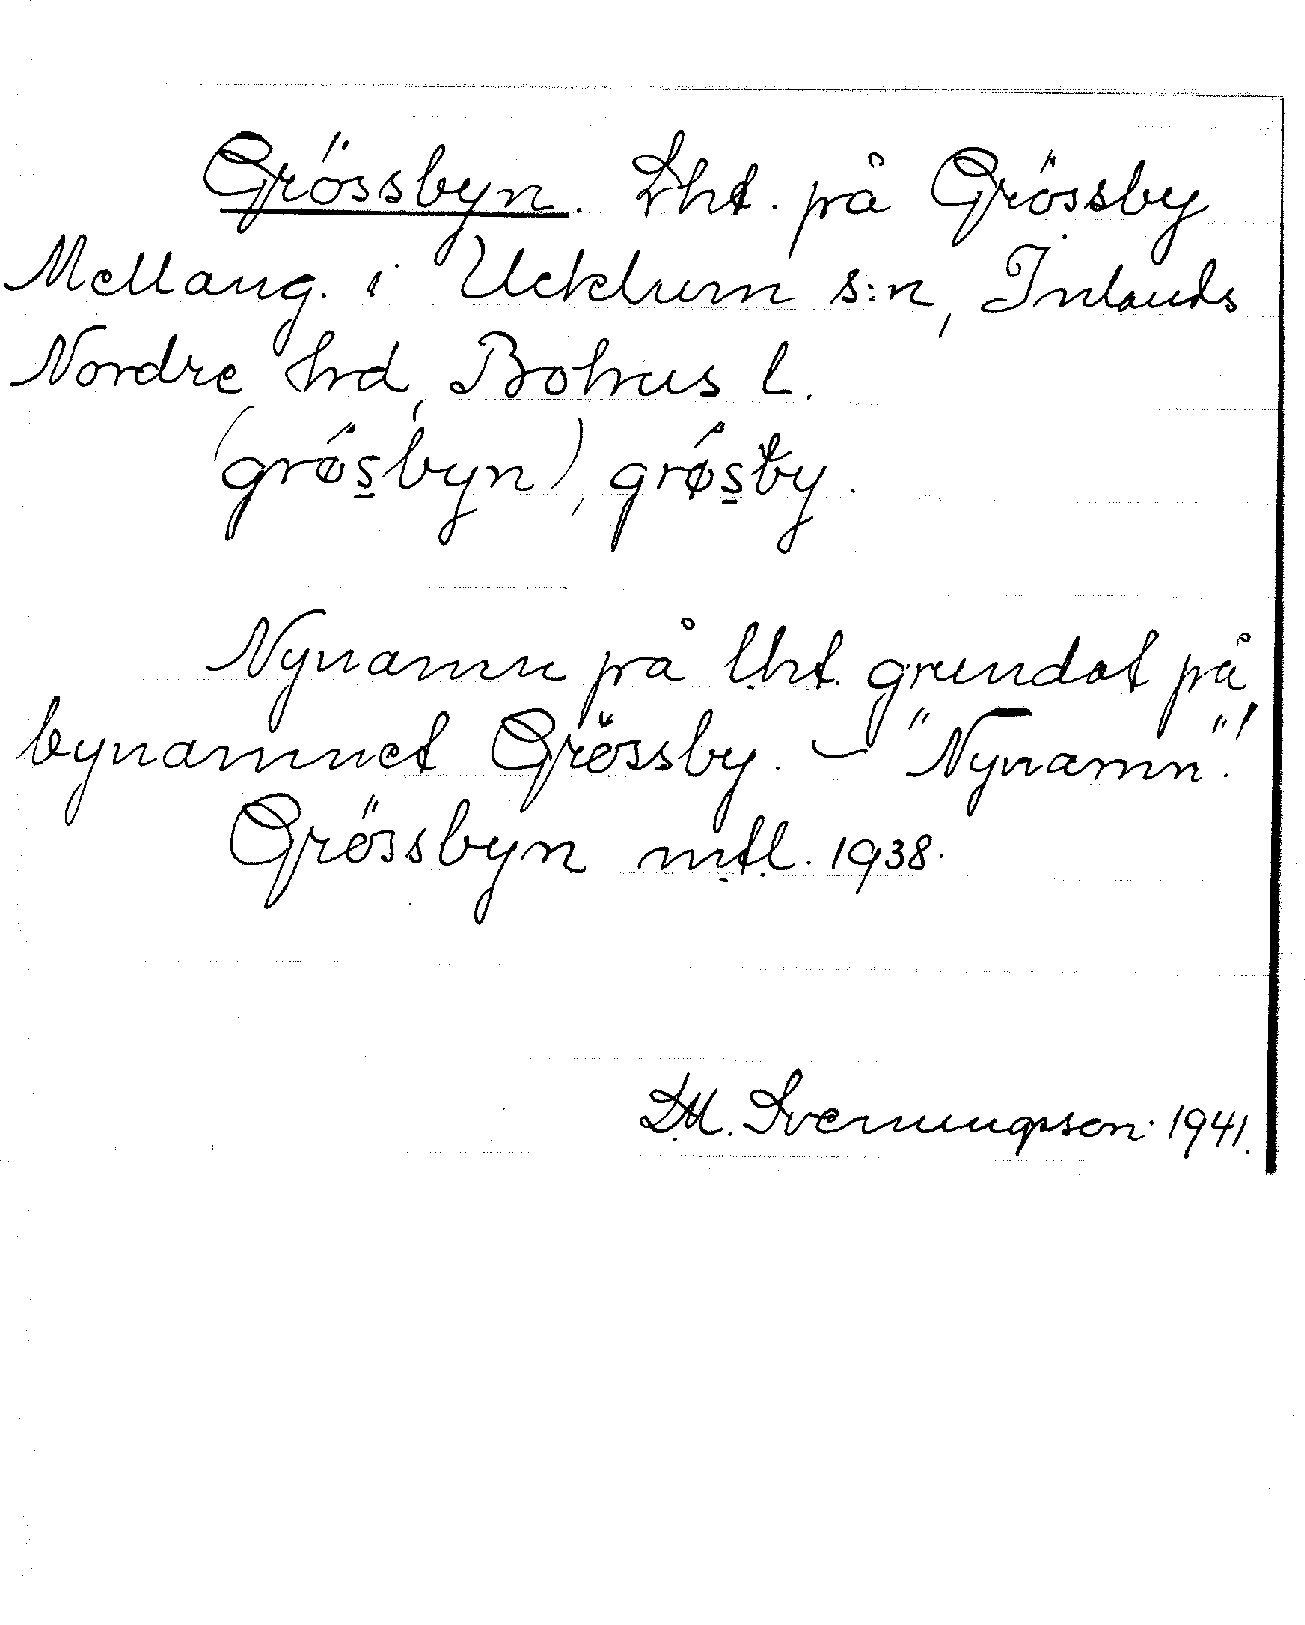 Grössbyn. Lht. på Grössby
Mellang. i Ucklum s:n, Inlands
Nordre hrd, Bohus l.
(grǿs̲byn), grǿs̲by.
Nynamn på lht. grundat på
bynamnet Grössby. — "Nynamn"!
Grössbyn mtl. 1938.
D.M. Svenungsson. 1941.